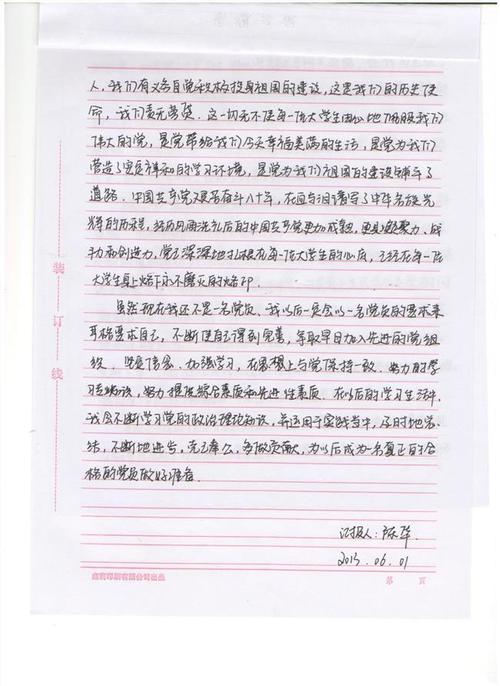 人，我们有义务自觉积极投身祖国的建设，这是我们的历史使
命，我们责无旁贷。这一切无不使每一位大学生由心地佩服我们
伟大的党，是党带给我们今天幸福美满的生活，是党为我们
营造了宽容祥和的学习环境，是党为我们祖国的建设铺平了
道路。中国共产党艰苦奋斗八十年，在血与泪谱写了中华名族光
辉的历程，经历风雨洗礼后的中国共产党更加成熟，更具凝聚力、战
斗力和创造力，党已深深地扎根在每一位大学生的心底，已经在每一位
大学生身上烙下永不磨灭的烙印。
虽然现在我还不是一名党员，我以后一定会以一名党员的要求来
严格要求自己，不断使自己得到完善，争取早日加入先进的党组
织。坚定信念、加强学习，在思想上与党保持一致。努力的学
习，努力提高综合素质和先进性素质。在以后的学习生活中，
我会不断学习党的政治理论知识，并运用于实践当中，及时地总
结，不断地进步，克己奉公，多做贡献，为以后成为一名真正的合
格的党员做好准备。
汇报人：陈华
2013.06.01
装
订
线
印刷有限公司出品
第 页